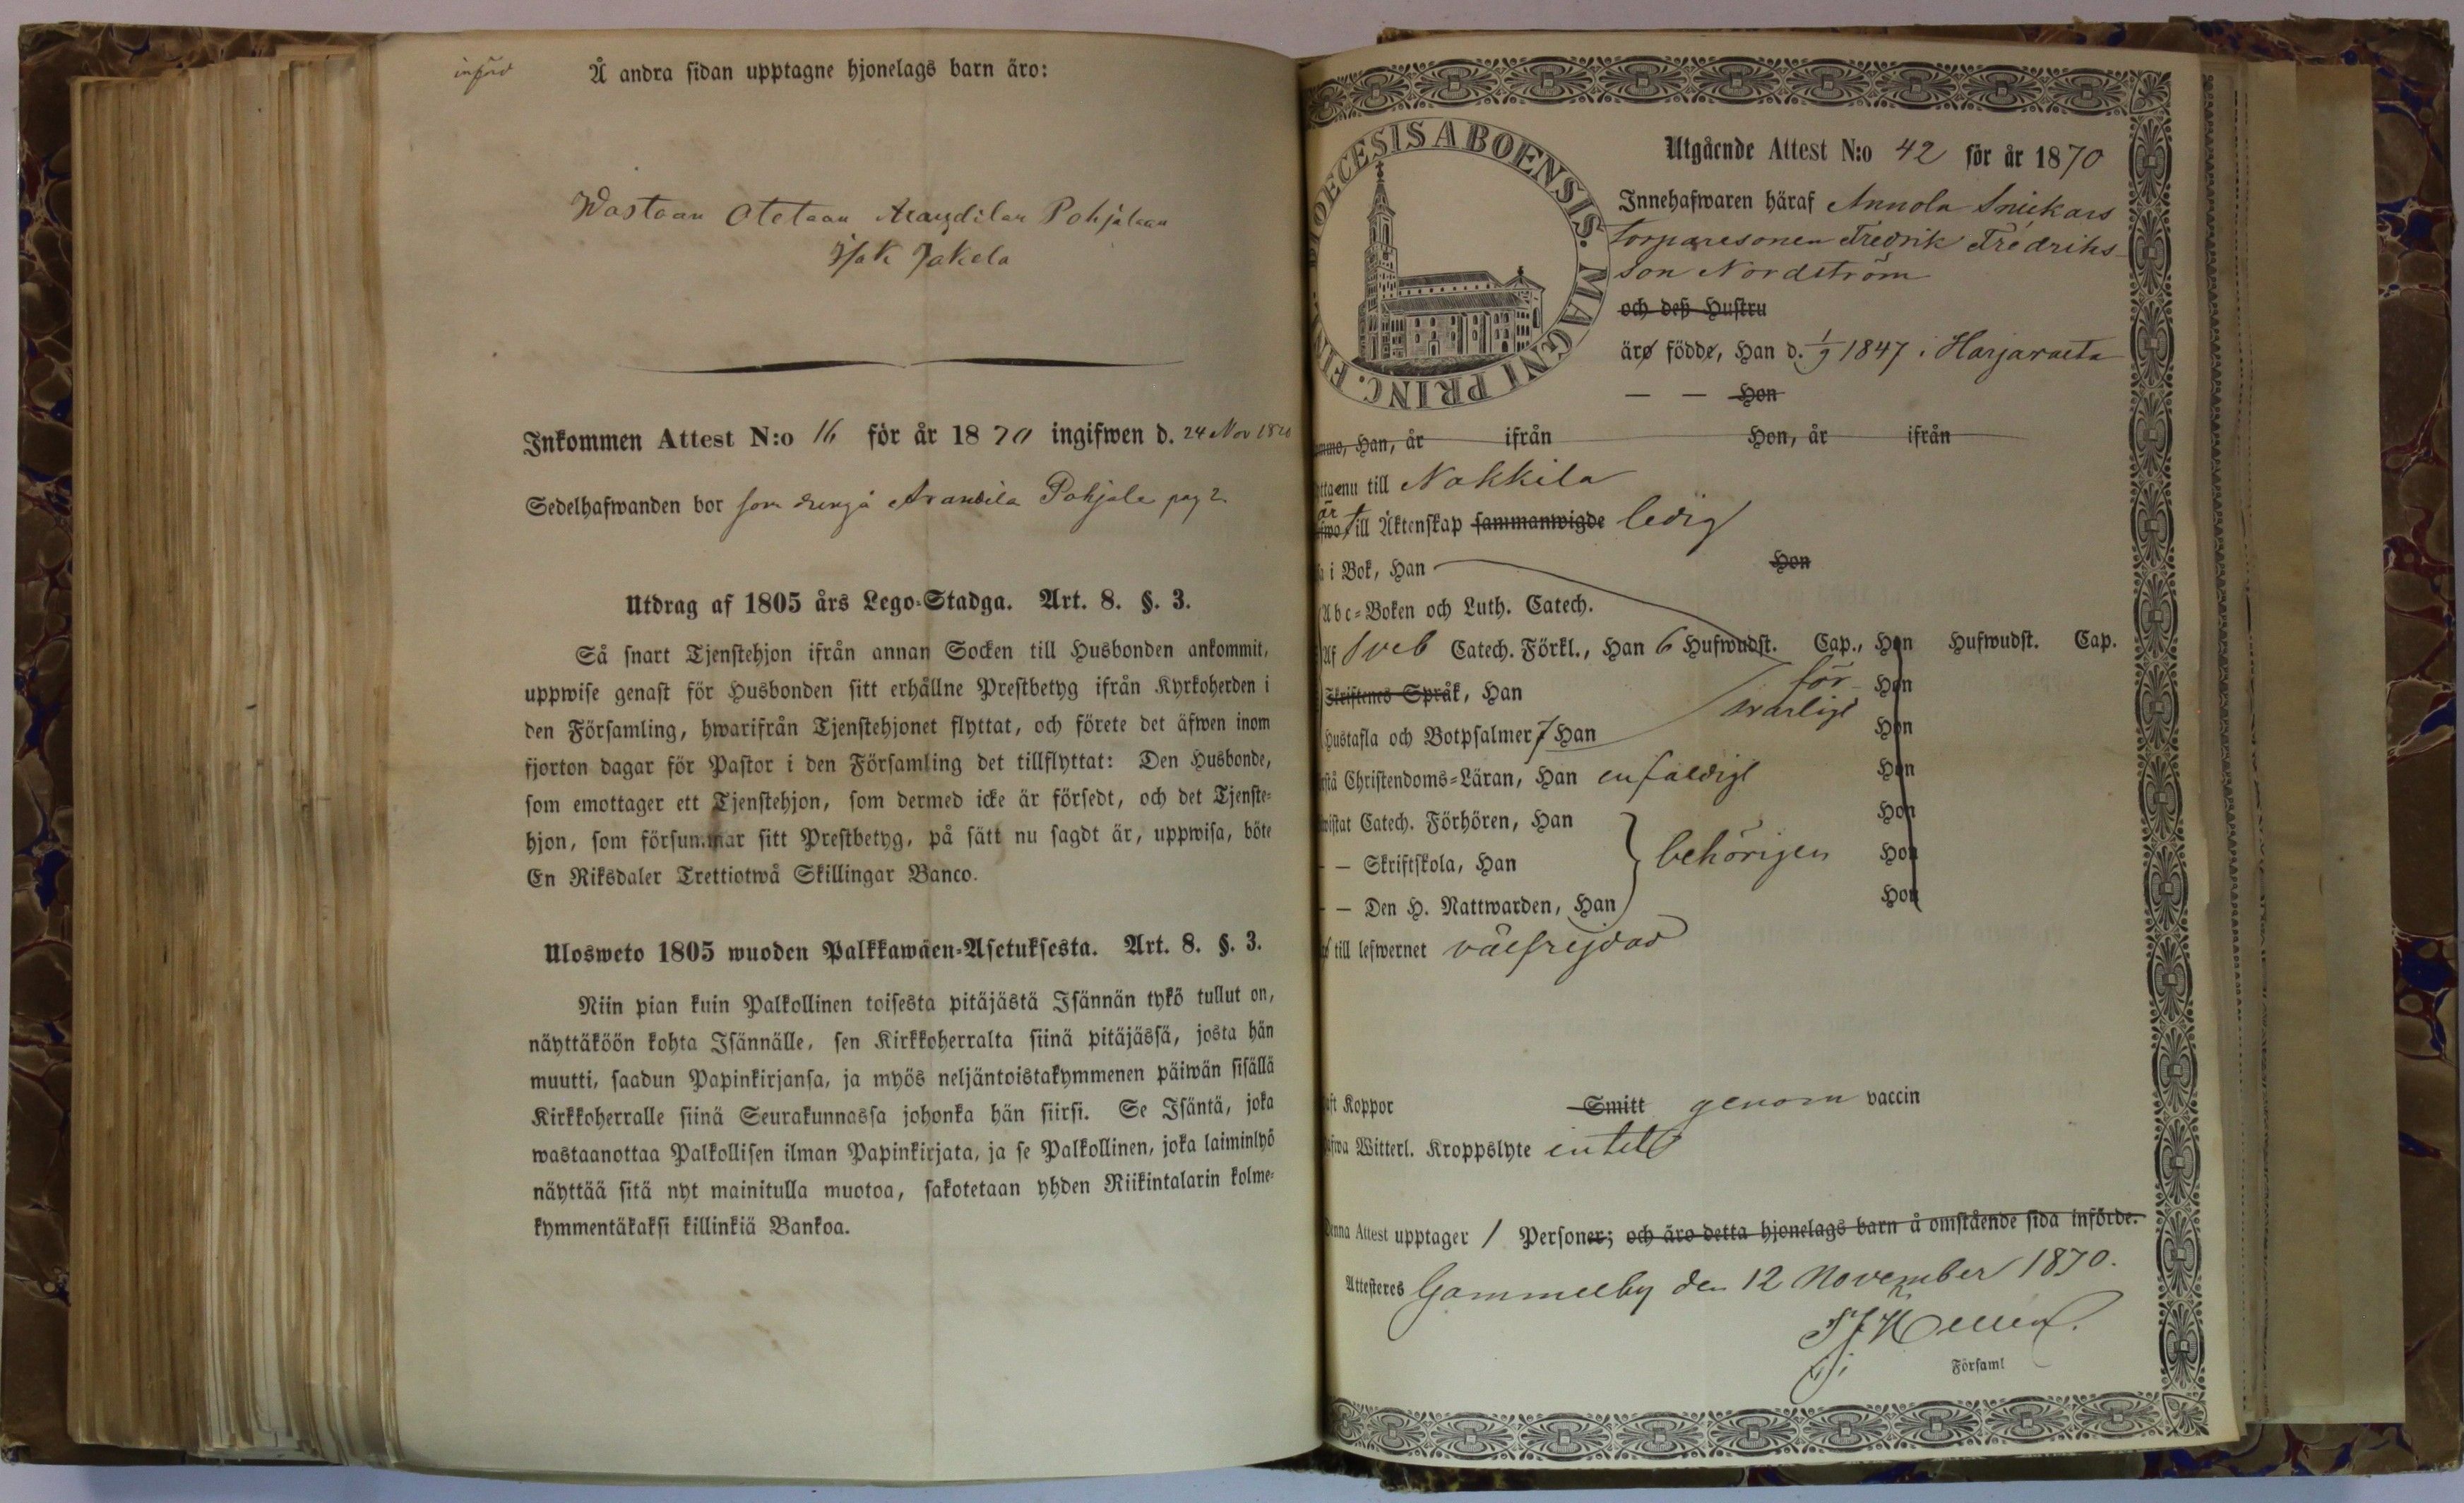 införd
Å andra sidan upptagne hjonelags barn äro:
Wastaan Otetaan Pohjalaan
Isak Jakola
Inkommen Attest N:o 16 för år 1870 ingifwen d. 24 Nov 1870
Sedelhafwanden bor som dreng å Arandila Pohjala pag 2
Utdrag af 1805 års Lego-Stadga. Art. 8. §. 3.
Så snart Tjenstehjon ifrån annan Socken till Husbonden ankommit,
uppwise genast för Husbonden sitt erhållne Prestbetyg ifrån Kyrkoherden i
den Församling, hwarifrån Tjenstehjonet flyttat, och förete det äfwen inom
fjorton dagar för Pastor i den Församling det tillflyttat: Den Husbonde,
som emottager ett Tjenstehjon, som dermed icke är försedt, och det Tjenste-
hjon, som försummar sitt Prestbetyg, på sätt nu sagdt är, uppwisa, böte
En Riksdaler Trettiotwå Skillingar Banco.
Ulosweto 1805 wuoden Palkkawäen-Asetuksesta. Art. 8. §. 3.
Niin pian kuin Palkollinen toisesta pitäjästä Isännän tykö tullut on,
näyttäköön kohta Isännälle, sen Kirkkoherralta siinä pitäjässä, josta hän
muutti, saadun Papinkirjansa, ja myös neljäntoistakymmenen päiwän sisällä
Kirkkoherralle siinä Seurakunnassa johonka hän siirsi. Se Isäntä, joka
wastaanottaa Palkollisen ilman Papinkirjata, ja se Palkollinen, joka laiminlyö
näyttää sitä nyt mainitulla muotoa, sakotetaan yhden Riikintalarin kolme-
kymmentäkaksi killinkiä Bankoa.
DIOECESIS ABOENSIS. MAGNI PRINC. FIN
Utgående Attest N:o 42 för år 1870
Innehafwaren häraf Annola Snickars
torparesonen Fredrik Fredriks-
son Nordström
och deß Hustru
äro födde, Han d. 1/9 1847 i Harjavalta
— — Hon
Han, år ifrån Hon, år ifrån
nu till Nakkila
är till Äktenskap sammanwigde ledig
i Bok, Han Hon
Abc-Boken och Luth. Catech.
Af Sveb Catech. Förkl., Han 6 Hufwudst. Cap., Hon Hufwudst. Cap.
Skriftenes Språk, Han för- Hon
svarligt
Hustafla och Botpsalmer 7 Han Hon
Christendoms-Läran, Han enfaldigt Hon
Catech. Förhören, Han Hon
— Skriftskola, Han behörigen Hon
— Den H. Nattwarden, Han Hon
till lefwernet välfrejdad
Koppor Smitt genom vaccin
Witterl. Kroppslyte intet
Denna Attest upptager 1 Personer; och äro detta hjonelags barn å omstående sida införde.
Attesteres Gammelby den 12 November 1870.
Församl